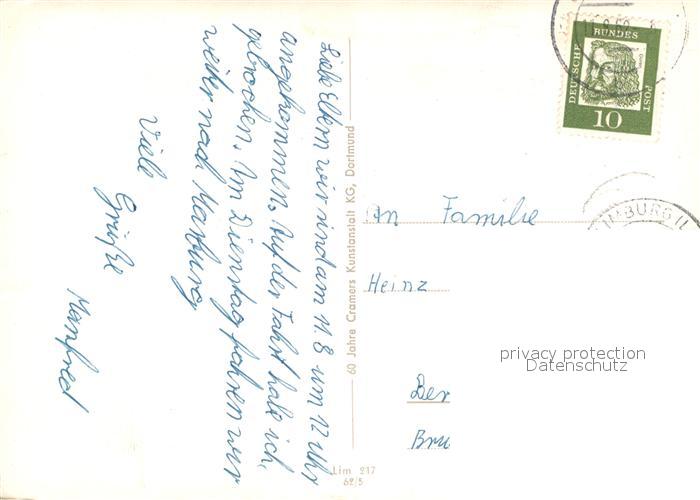 Liebe Eltern wir sind am 11.8 um 12 Uhr
angekommen. Auf der Fahrt habe ich
gebrochen. Am Dienstag fahren wir
weiter nach Marburg
Viele
Grüße
Manfred
60 Jahre Cramers Kunstanstalt KG, Dortmund
Lim 217
62/5
DEUTSCHE BUNDES POST
10
MBURG (L
An Familie
Heinz
Der
Bru
privacy protection
Datenschutz